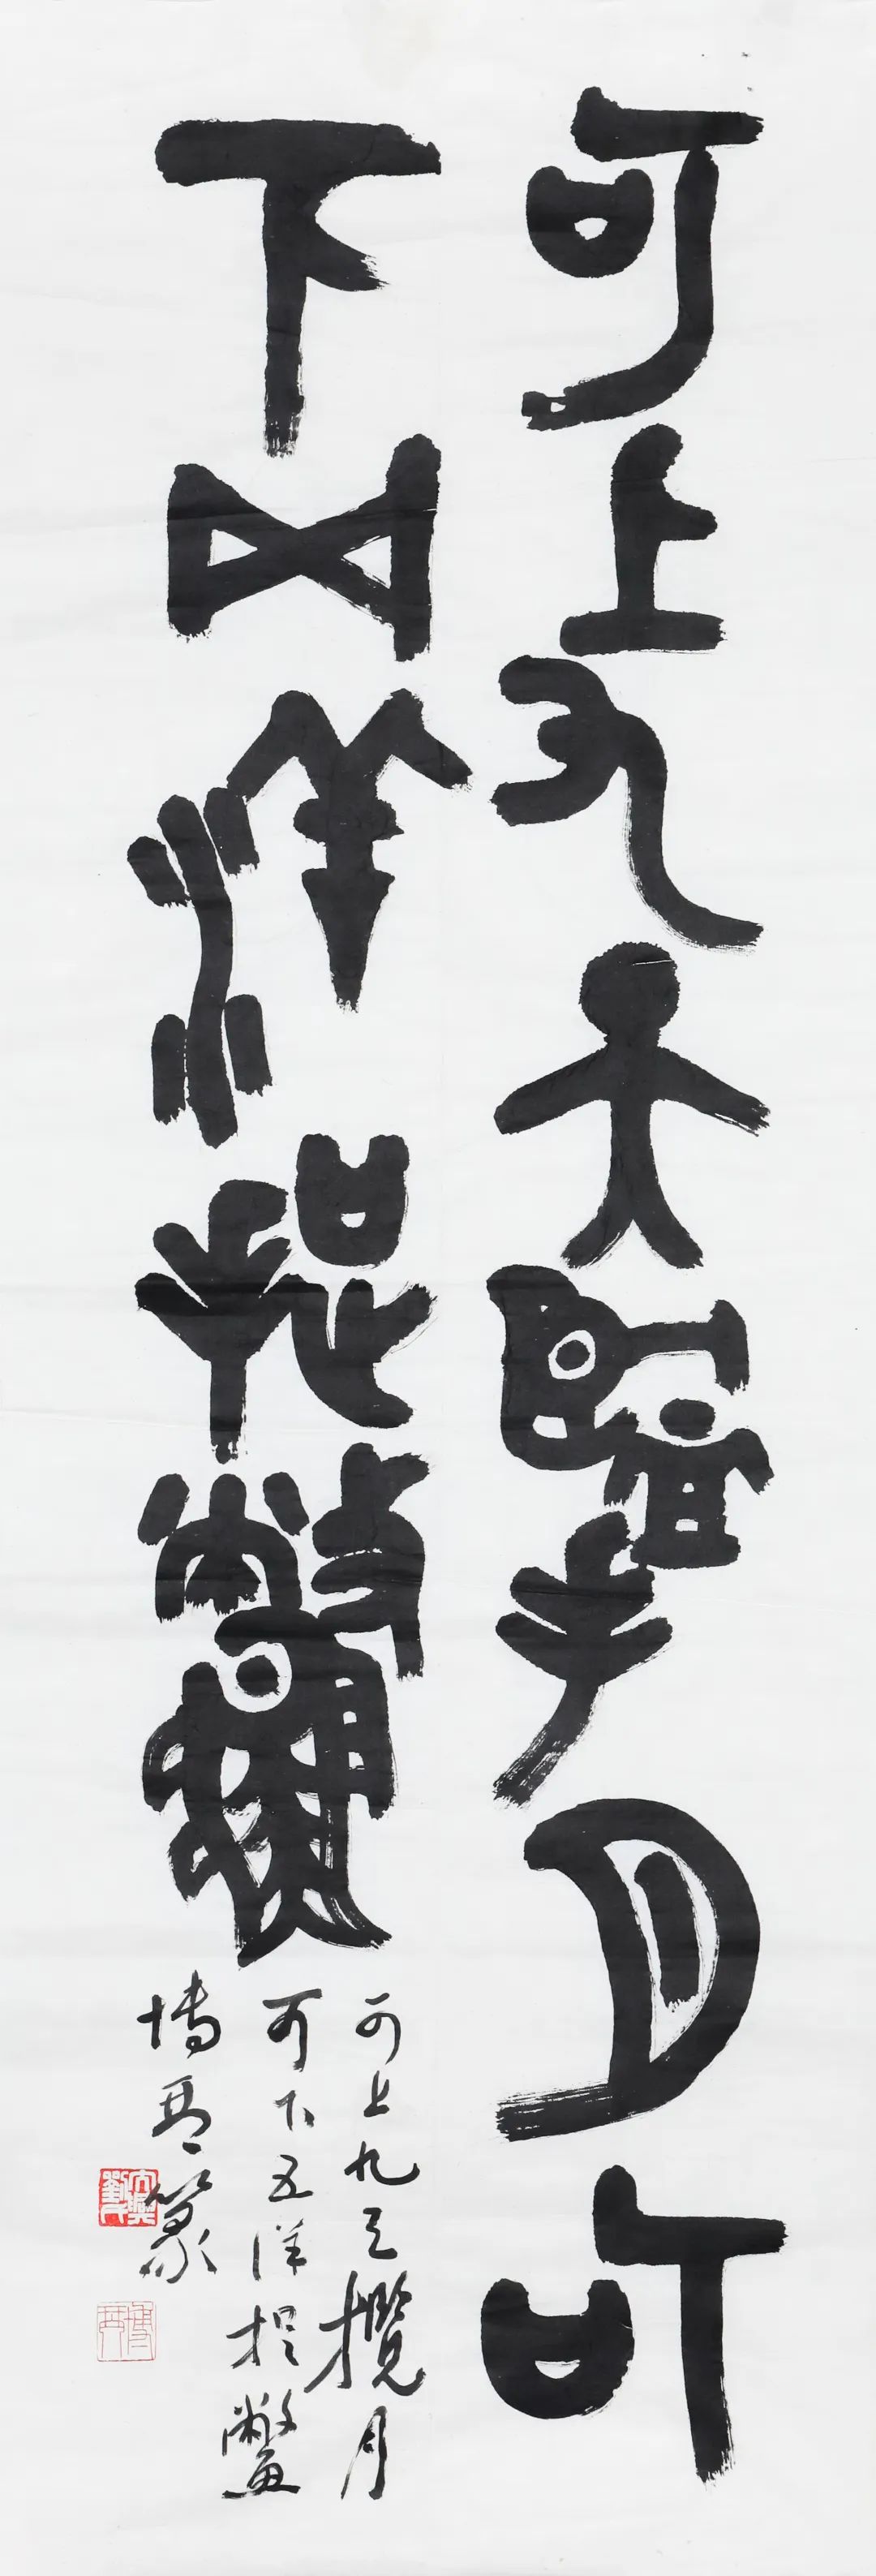 可上九天擥月可
下五洋捉鼈
可上九天揽月
可下五洋捉鳖
博 篆